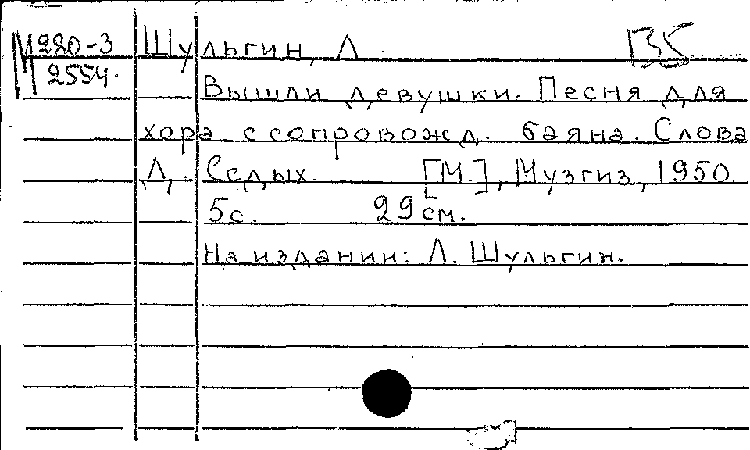 М 280-3 Шульгин, Л
2554.
Вышли девушки. Песня для
хора с сопровожд. баяна. Слова
Д. Седых. [М.], Музгиз, 1950
5с. 29 см.
На издании: Л. Шульгин.